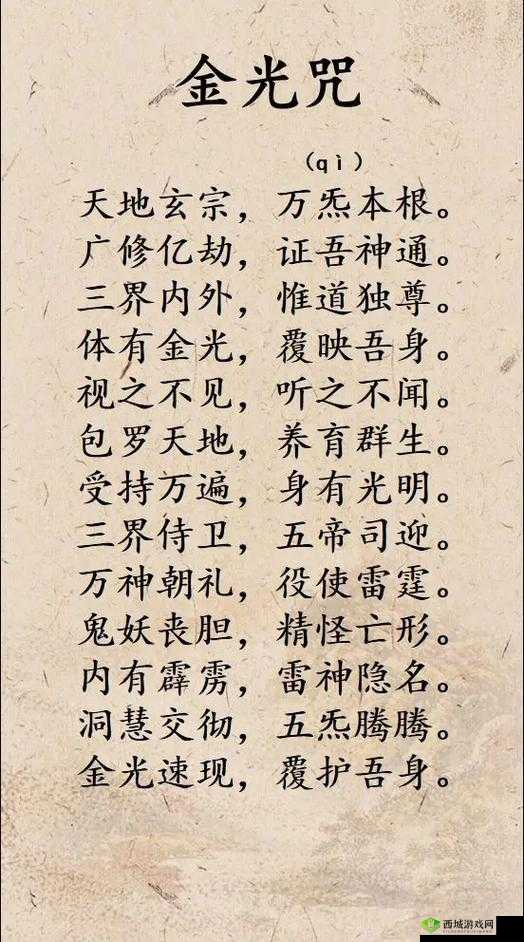 金光咒
（qì）
天地玄宗，万炁本根。
广修亿劫，证吾神通。
三界内外，惟道独尊。
体有金光，覆映吾身。
视之不见，听之不闻。
包罗天地，养育群生。
受持万遍，身有光明。
三界侍卫，五帝司迎。
万神朝礼，役使雷霆。
鬼妖丧胆，精怪亡形。
内有霹雳，雷神隐名。
洞慧交彻，五炁腾腾。
金光速现，覆护吾身。
西城游戏网